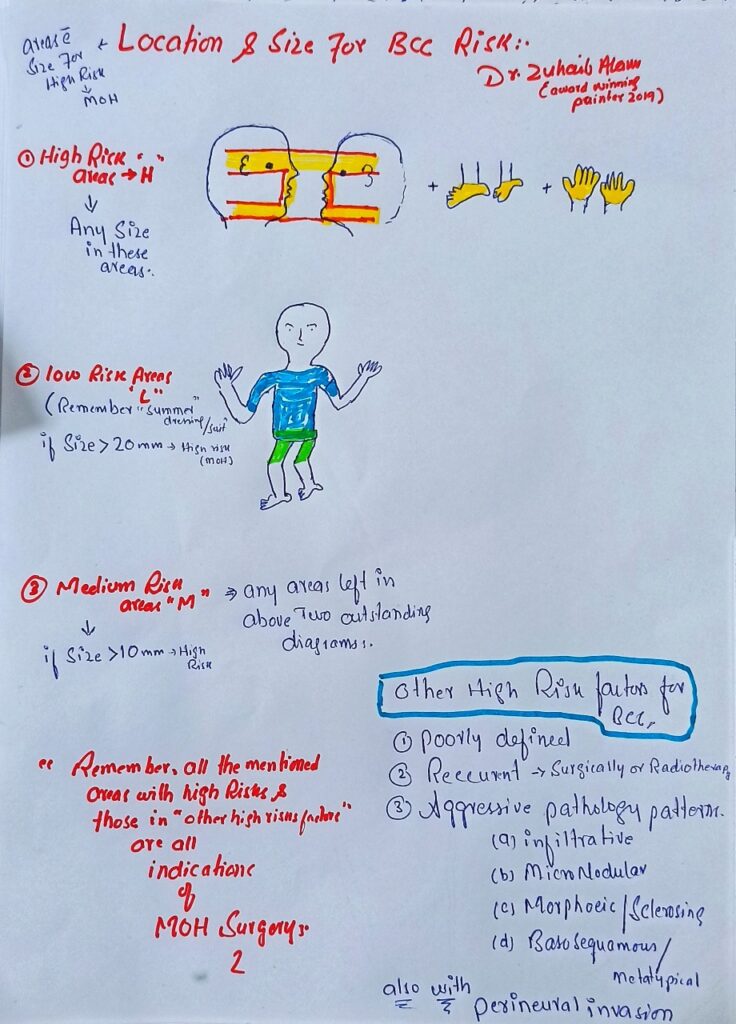 areas c̄
Size For
High Risk
↓
MOH
← Location & Size For BCC Risk:-
Dr. Zuhaib Alam
(award winning
painter 2019)
① High Risk
areas → H
↓
Any Size
in these
areas.
+ +
② low Risk Areas
"L"
(Remember "summer"
dressing/suit
if Size > 20mm → High risk
(MOH)
③ Medium Risk
areas "M"
⇒ any areas left in
above Two outstanding
diagrams:.
↓
if Size >10mm → High
Risk
Other High Risk factors for
BCC,
① Poorly defined
② Reccurent → Surgically or Radiotherapy
③ Aggressive pathology patterns.
(a) infiltrative
(b) MicroNodular
(c) Morphoeic/Sclerosing
(d) Basosequamous/
metatypical
also with
perineural invasion
" Remember, all the mentioned
areas with high Risks &
those in "other high risks factors"
are all
indications
of
MOH Surgery.
2